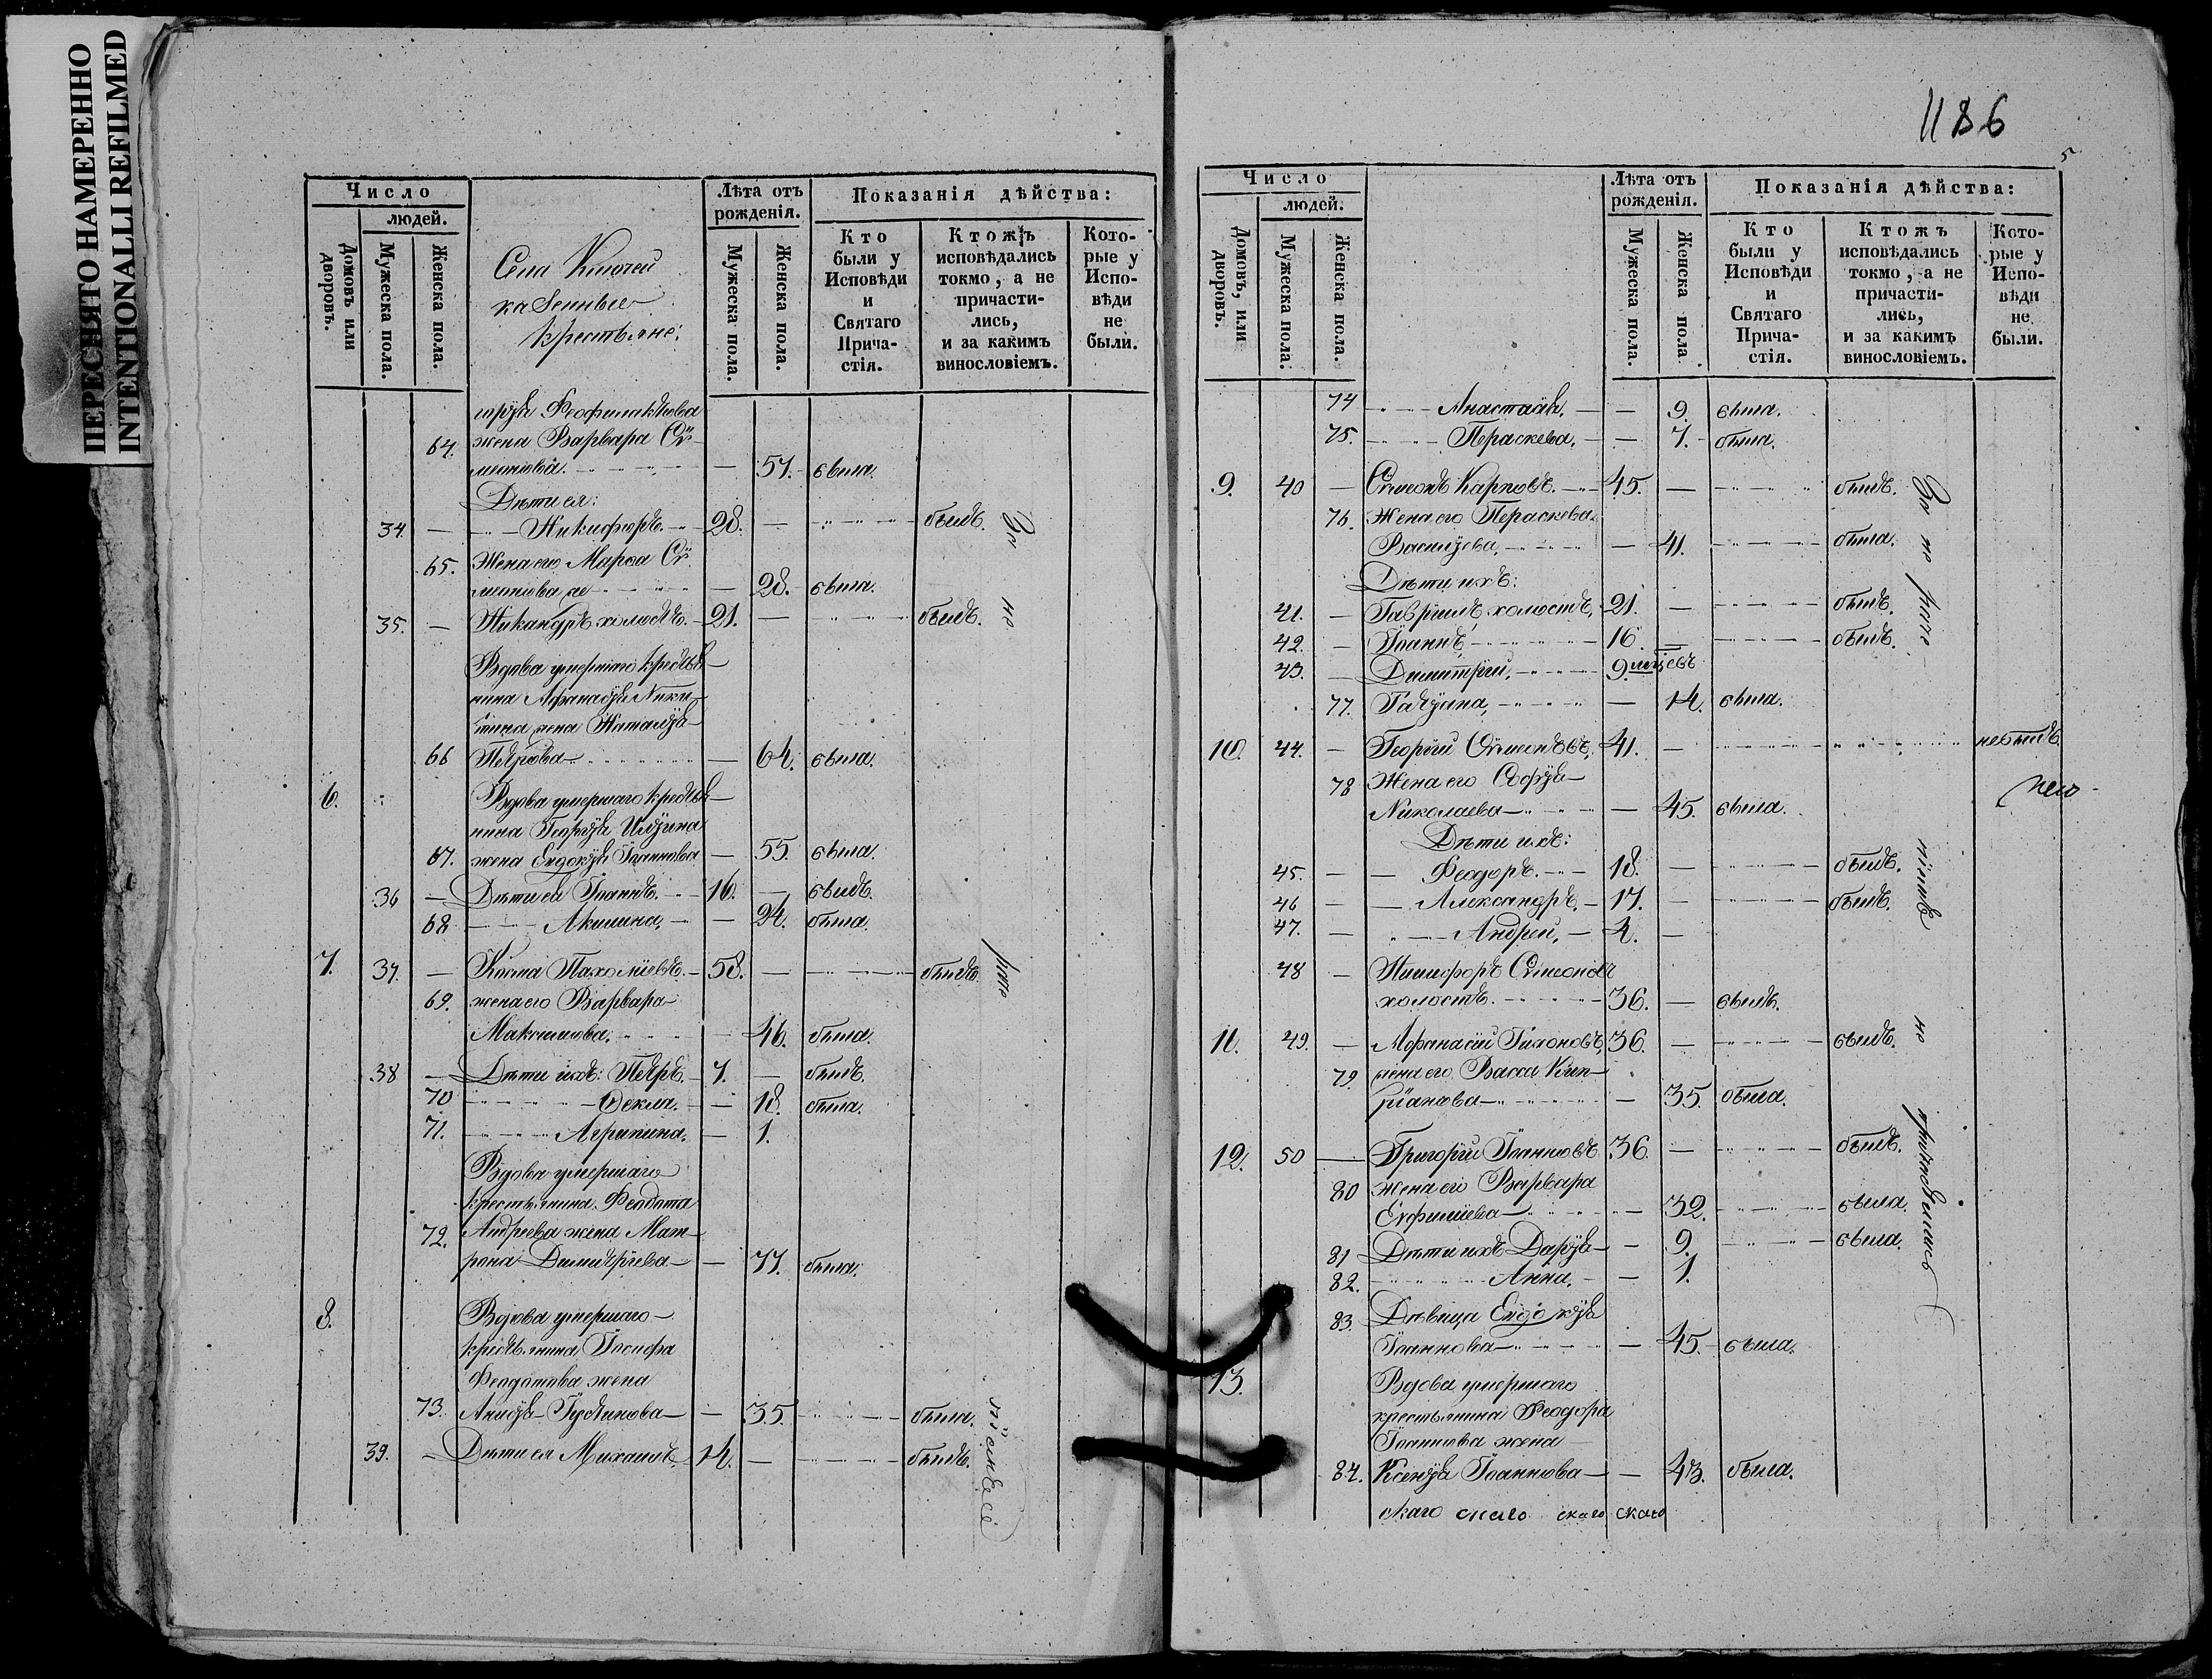 ПЕРЕСНЯТО НАМЕРЕННО
INTENTIONALLI REFILMED
Число
людей.
Домовъ или дворовъ.
Мужеска пола.
Женска пола.
Села Ключей
казенные
крестьяне:
Лѣта отъ рожденія.
Мужеска пола.
Женска пола.
Показанія дѣйства:
Кто были у Исповѣди и Святаго Прича-стія.
Ктожъ исповѣдались токмо, а не причасти-лись, и за какимъ винословіемъ.
Кото-рые у Испо-вѣди не были.
64. жена Варвара Си-
меонова. — 57. была.
Дѣти ея:
34. — Никифоръ. 28. — былъ.
65. Жена его Марѳа Си-
меонова — 28. была.
35. — Никандръ холостъ. 21. — былъ.
Вдова умершаго крестья-
нина Афанасія Ники-
тина жена Наталія
66 Петрова — 64. была.
6. Вдова умершаго крестья-
нина Георгія Илiина
67. жена Евдокія Іоаннова — 55. была.
36 — Дѣти ея Іоаннъ. 16. — былъ.
68 Акилина, — 24. была.
7. 37. — Косма Пахоміевъ. 58. — былъ.
69. жена его Варвара
Максимова. — 46. была.
38 — Дѣти ихъ: Петръ. 7. — былъ.
70 Ѳекла. — 18. была.
71. Агрипина. — 1.
Вдова умершаго
крестьянина Феодота
72. Андреева жена Мат-
рона Димитріева — 77. была.
8. Вдова умершаго
крестьянина Іосифа
Феодотова жена
73. Анисія Іустинова — 35. была.
39. — Дѣти ея Михаилъ. 14. — былъ.
За не
1186
5
Число
людей.
Домовъ, или дворовъ.
Мужеска пола.
Женска пола.
Лѣта отъ рожденія.
Мужеска пола.
Женска пола
Показанія дѣйства:
Кто были у Исповѣди и Святаго Прича-стія.
Ктожъ исповѣдались токмо, а не причасти-лись, и за какимъ винословіемъ.
Кото-рые у Испо-вѣди не были.
74 Анастасія, — 9. была.
75. Параскева, — 7. была.
9. 40 — Симеонъ Карповъ. 45. — былъ.
76. Жена его Параскева
Василіева, — 41. была.
Дѣти ихъ:
41. — Гавріилъ холостъ, 21. — былъ.
42. — Іоаннъ, 16. — былъ.
43. — Димитрій, 9. мѣсяцевъ
77. Татіана, — 14. была.
10. 44. — Георгій Симеоновъ, 41. — небылъ
78 Жена его Софія
Николаева — 45. была.
Дѣти ихъ:
45. — Феодоръ. 18. — былъ.
46 — Александръ. 17. — былъ.
47. — Андрей, 4. —
48 — Никифоръ Симеоновъ
холостъ. 36. — былъ.
11. 49. — Афанасій Тихоновъ, 36. — былъ.
79. жена его Васса Кип-
ріанова — 35. была.
12. 50 — Григорій Іоанновъ 36. — былъ.
80 жена его Варвара
Евфиміева — 32. была.
81 Дѣти ихъ Дарія — 9. была.
82. Анна, — 1.
83. Дѣвица Евдокія
Іоаннова — 45. была.
13. Вдова умершаго
крестьянина Феодора
Іоаннова жена
84. Ксенія Іоаннова — 43. была.
скаго скаго скаго скаго
За не
не причастились